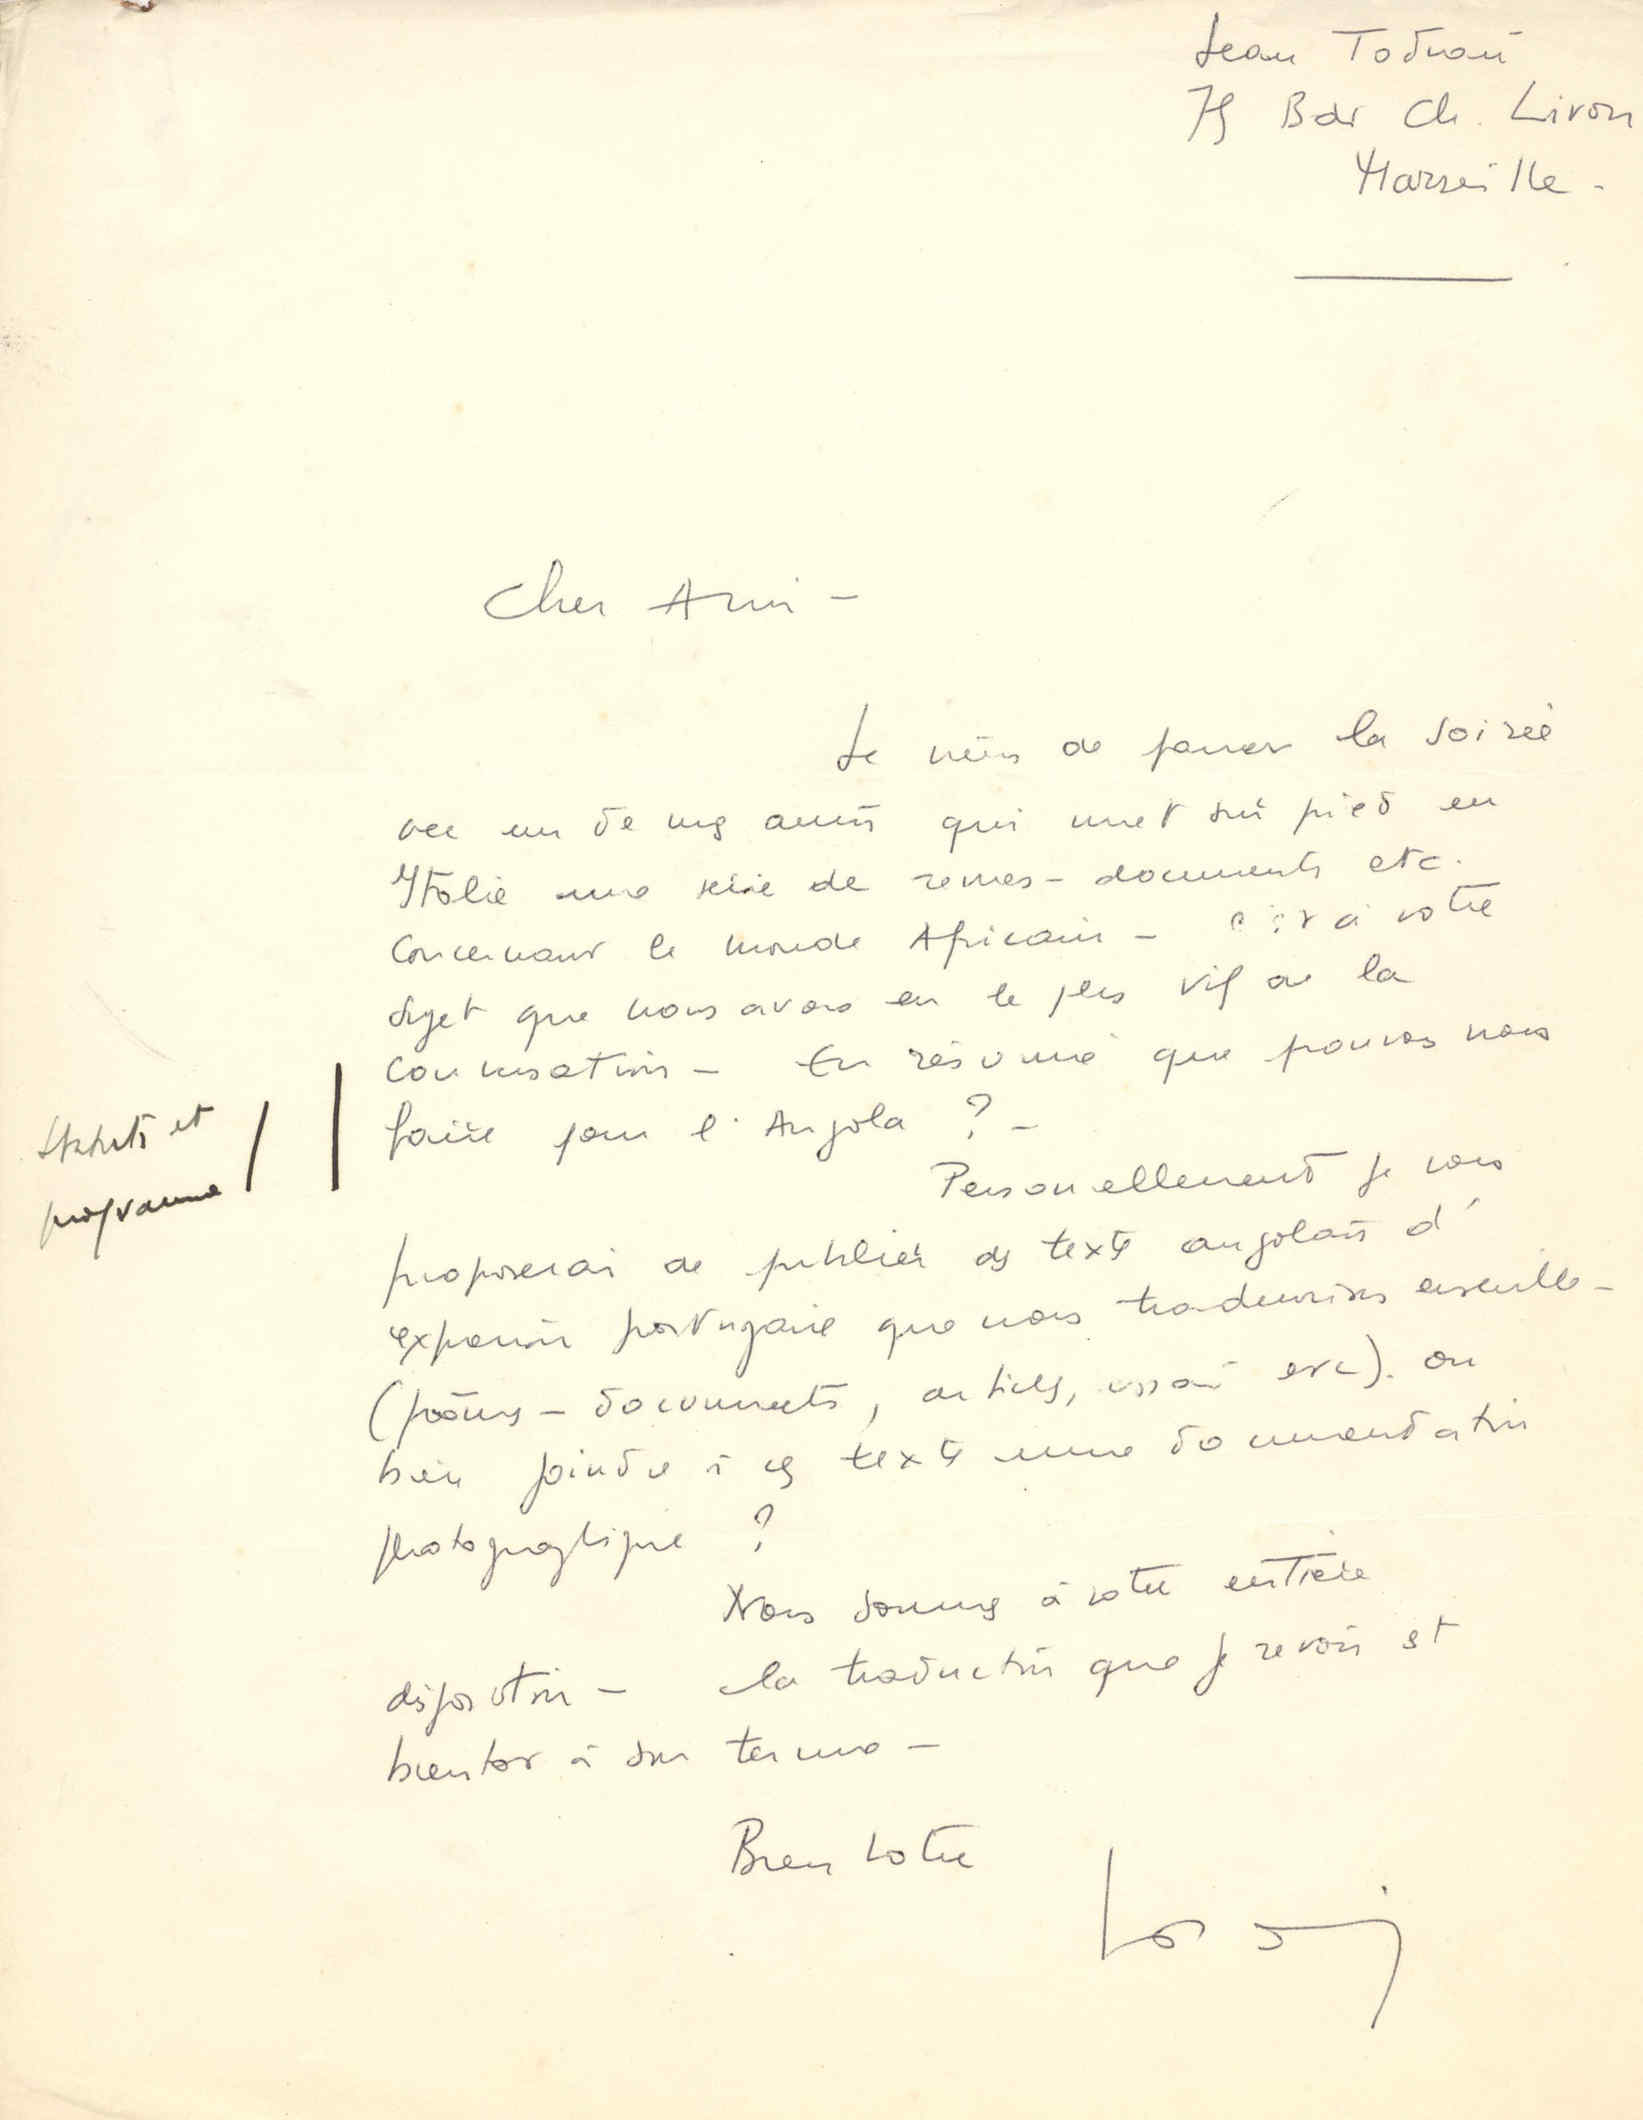 Jean Todrani
75 Bd Ch. Livon
Marseille -
Cher Ami -
Je viens de passer la soirée
avec un de mes amis qui met sur pied en
Italie une série de revues - documents etc.
Concernant le monde Africain - C'est à votre
sujet que nous avons eu le plus vif de la
conversation - En résumé que pouvons nous
faire pour l'Angola ? -
Statuts et
programme
Personnellement je vous
proposerai de publier des textes angolais d'
expression portugaise que nous traduirions ensemble -
(poèmes - documents, articles, essais etc). ou
bien joindre à ces textes une documentation
photographique ?
Nous sommes à votre entière
disposition - la traduction que je revois est
bientôt à son terme -
Bien votre